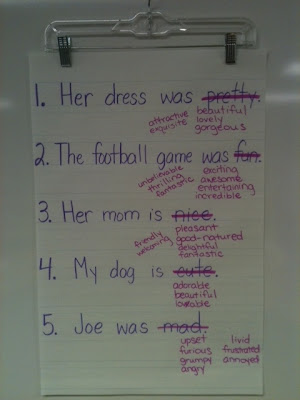 1. Her dress was pretty.
attractive beautiful
exquisite lovely
gorgeous
2. The football game was fun.
unbelievable exciting
thrilling awesome
fantastic entertaining
incredible
3. Her mom is nice.
friendly pleasant
welcoming good-natured
delightful
fantastic
4. My dog is cute.
adorable
beautiful
lovable
5. Joe was mad.
upset livid
furious frustrated
grumpy annoyed
angry